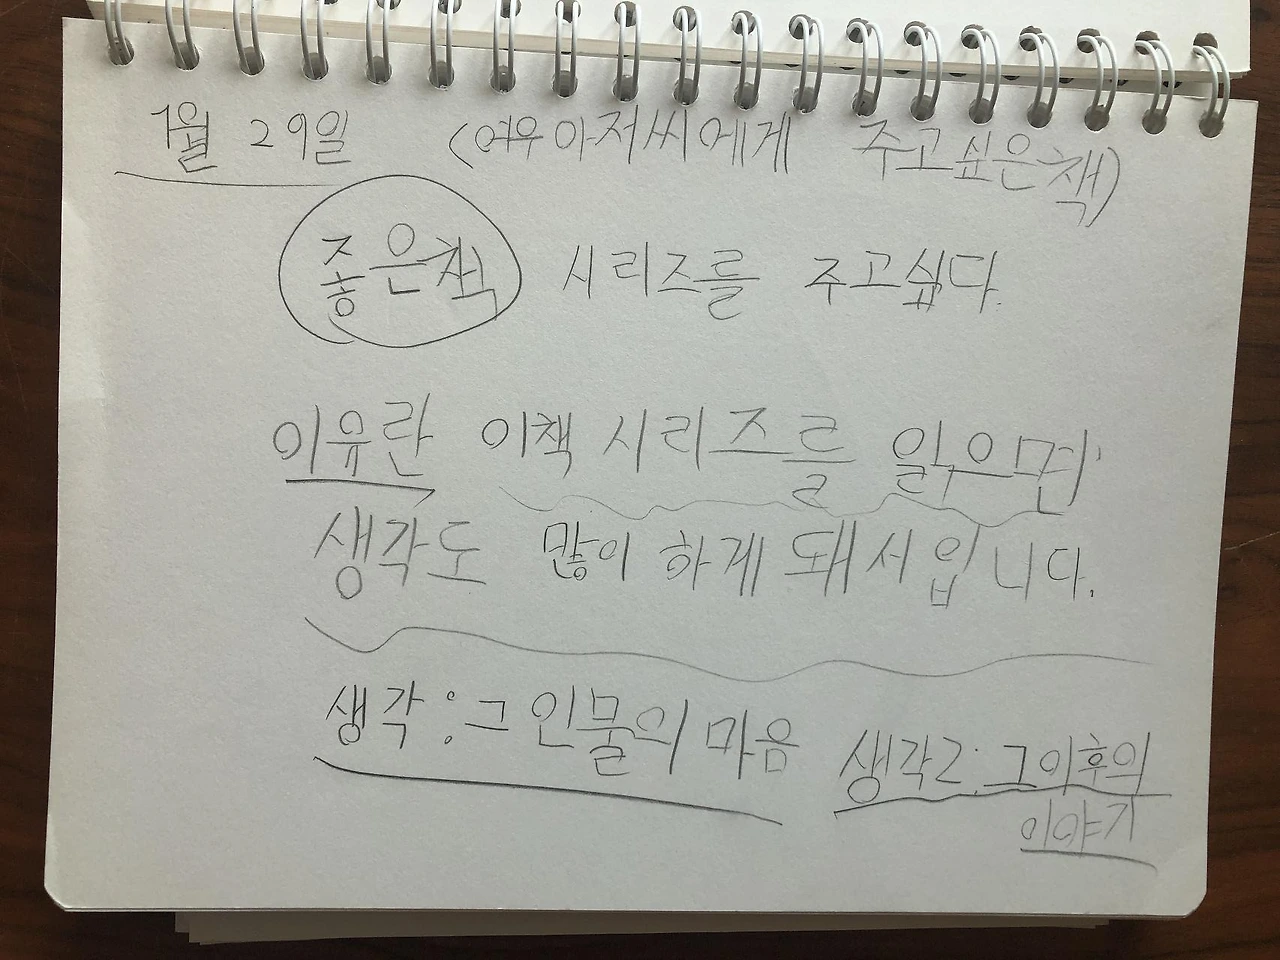 1월 29일 (여우아저씨에게 주고싶은책)
좋은책 시리즈를 주고싶다.
이유란 이책 시리즈를 읽으면
생각도 많이 하게 돼서입니다.
생각:그 인물의 마음 생각2:그이후의
이야기